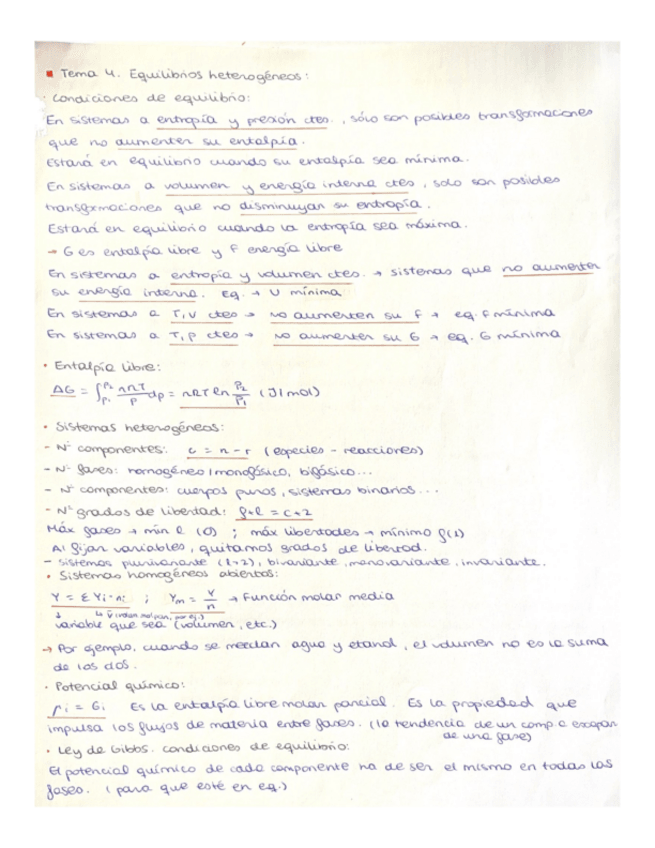 ▪ Tema 4. Equilibrios heterogéneos:
· Condiciones de equilibrio:
En sistemas a entropía y presión ctes., sólo son posibles transformaciones
que no aumenten su entalpía.
Estará en equilibrio cuando su entalpía sea mínima.
En sistemas a volumen y energía interna ctes, solo son posibles
transformaciones que no disminuyan su entropía.
Estará en equilibrio cuando la entropía sea máxima.
→ G es entalpía libre y F energía libre
En sistemas a entropía y volumen ctes. → sistemas que no aumenten
su energía interna. Eq. → U mínima
En sistemas a T,V ctes → no aumenten su F → eq. F mínima
En sistemas a T,P ctes → no aumenten su G → eq. G mínima
· Entalpía libre:
ΔG = ∫p₁^p₂ nRT/P dp = nRT ln P₂/P₁ (J/mol)
· Sistemas heterogéneos:
- Nº componentes: c = n - r (especies - reacciones)
- Nº fases: homogéneo/monofásico, bifásico...
- Nº componentes: cuerpos puros, sistemas binarios...
- Nº grados de libertad: f+l = c+2
Máx fases → mín l (0) ; máx libertades → mínimo f(1)
Al fijar variables, quitamos grados de libertad.
- Sistemas plurivariante (l>2), bivariante, monovariante, invariante.
· Sistemas homogéneos abiertos:
Y = Σ Yi·ni ; Ym = Y/n → Función molar media
variable que sea (volumen, etc.)
→ Por ejemplo, cuando se mezclan agua y etanol, el volumen no es la suma
de los dos.
· Potencial químico:
μi = Gi Es la entalpía libre molar parcial. Es la propiedad que
impulsa los flujos de materia entre fases. (la tendencia de un comp. a escapar
de una fase)
· Ley de Gibbs. condiciones de equilibrio:
El potencial químico de cada componente ha de ser el mismo en todas las
fases. (para que esté en eq.)